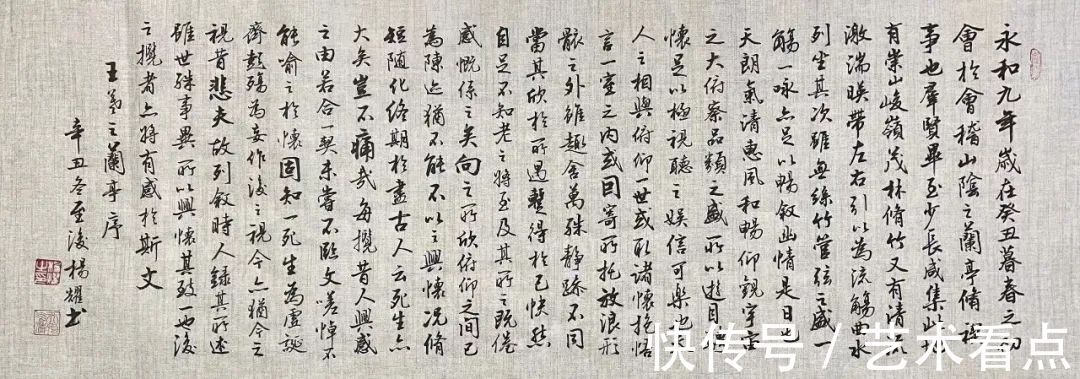 永和九年歲在癸丑暮春之初
會於會稽山陰之蘭亭脩禊
事也羣賢畢至少長咸集此地
有崇山峻嶺茂林脩竹又有清流
激湍暎帶左右引以為流觴曲水
列坐其次雖無絲竹管弦之盛一
觴一咏亦足以暢敘幽情是日也
天朗氣清惠風和暢仰觀宇宙
之大俯察品類之盛所以遊目騁
懷足以極視聽之娛信可樂也夫
人之相與俯仰一世或取諸懷抱悟
言一室之內或因寄所托放浪形
骸之外雖趣舍萬殊靜躁不同
當其欣於所遇暫得於己快然
自足不知老之將至及其所之既倦
感慨係之矣向之所欣俯仰之間已
為陳迹猶不能不以之興懷況脩
短隨化終期於盡古人云死生亦
大矣豈不痛哉每攬昔人興感
之由若合一契未嘗不臨文嗟悼不
能喻之於懷固知一死生為虛誕
齊彭殤為妄作後之視今亦猶今之
視昔悲夫故列敘時人錄其所述
雖世殊事異所以興懷其致一也後
之攬者亦將有感於斯文
王羲之蘭亭序
辛丑冬至後楊耀書
快传号/艺术看点